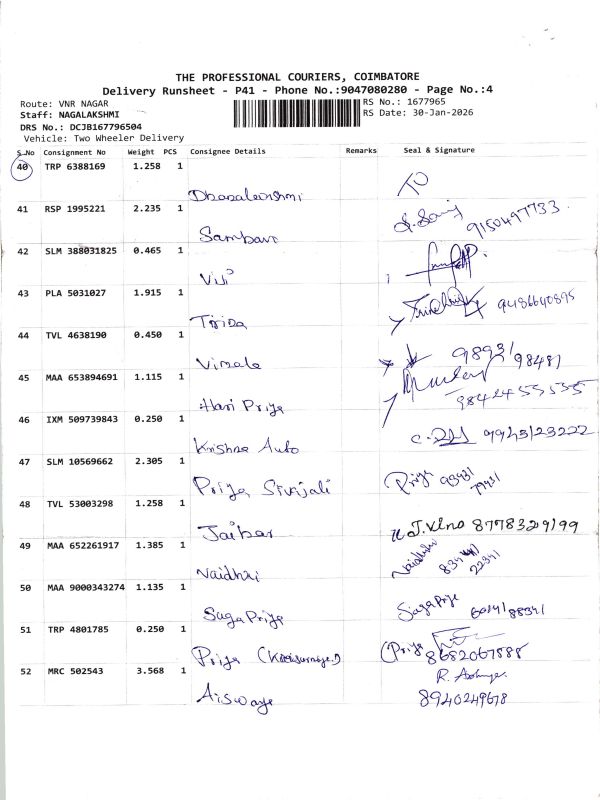 THE PROFESSIONAL COURIERS, COIMBATORE
Delivery Runsheet - P41 - Phone No.:9047080280 - Page No.:4
Route: VNR NAGAR
Staff: NAGALAKSHMI
DRS No.: DCJB167796504
Vehicle: Two Wheeler Delivery
RS No.: 1677965
RS Date: 30-Jan-2026
S.No Consignment No Weight PCS Consignee Details Remarks Seal & Signature
40 TRP 6388169 1.258 1
41 RSP 1995221 2.235 1 9150497733
42 SLM 388031825 0.465 1 Viji
43 PLA 5031027 1.915 1 9486640895
44 TVL 4638190 0.450 1 Vimala 98931/98481
45 MAA 653894691 1.115 1 Hari Priya 9842455535
46 IXM 509739843 0.250 1 Krishna Auto 9943123222
47 SLM 10569662 2.305 1 Priya Priya
48 TVL 53003298 1.258 1 8778329199
49 MAA 652261917 1.385 1
50 MAA 9000343274 1.135 1 Suga Priya
51 TRP 4801785 0.250 1 Priya (Priya 8682067888
52 MRC 502543 3.568 1 8940249678